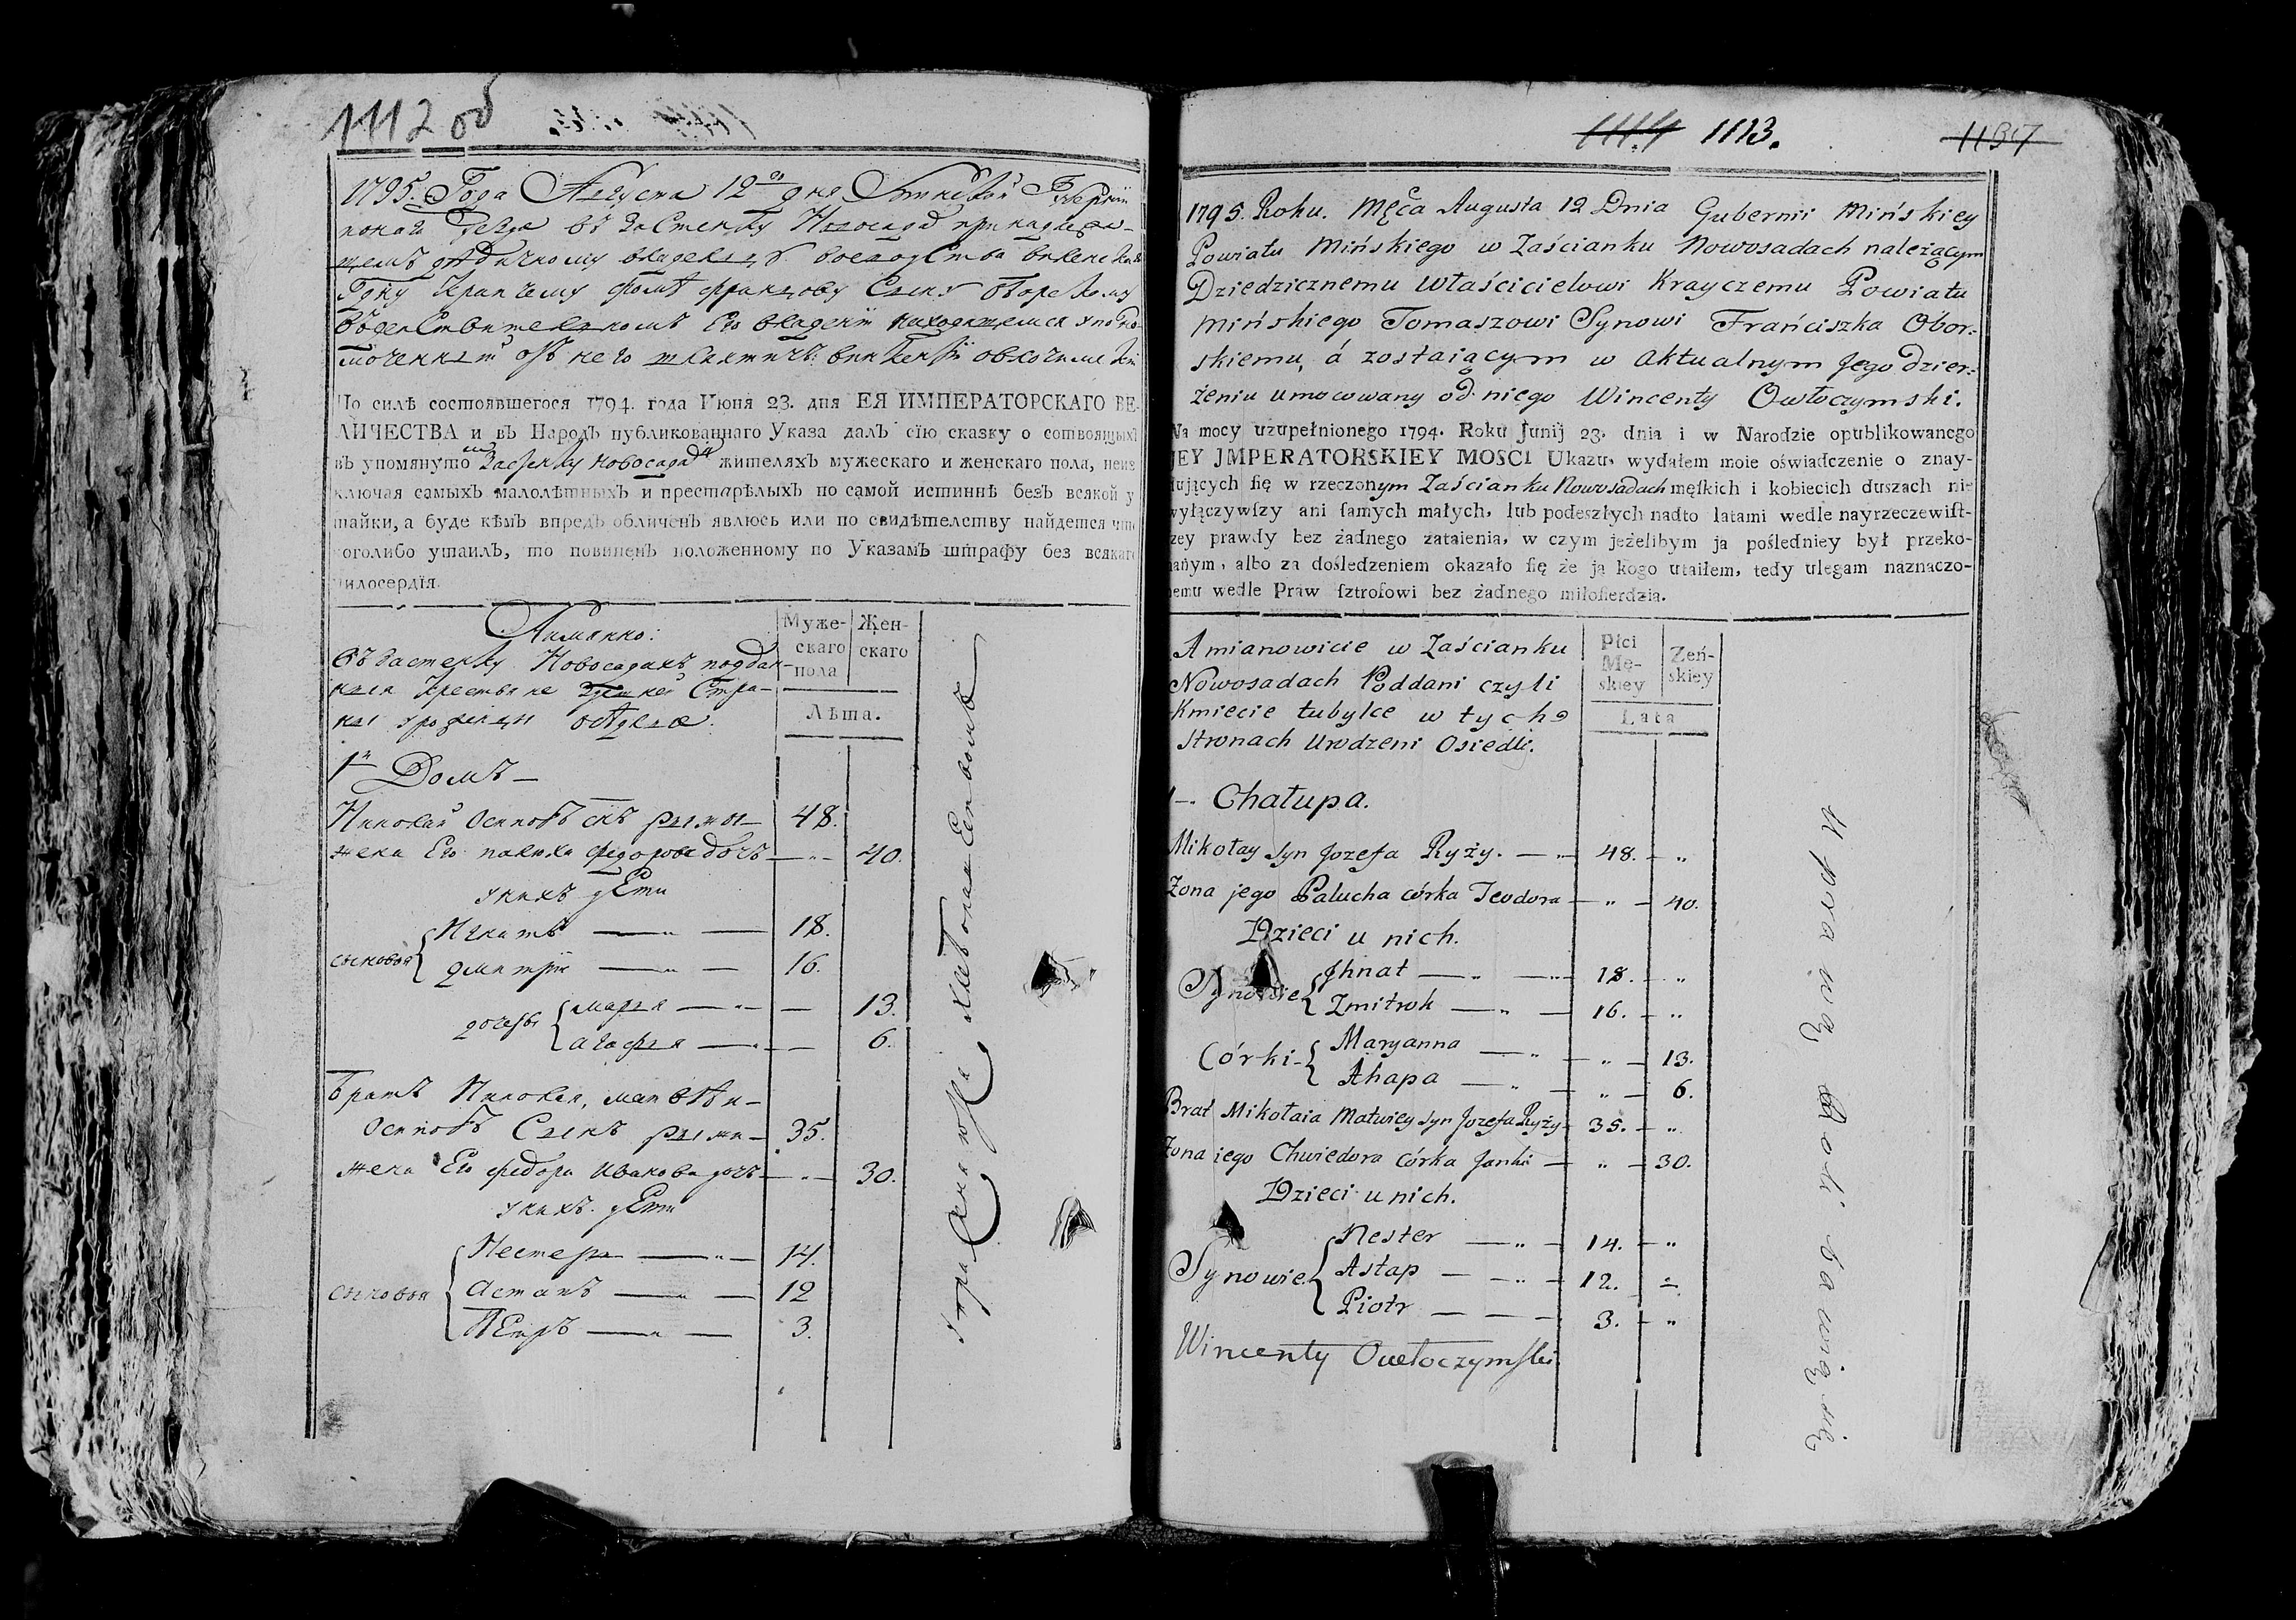 1112 об
1795. Года Августа 12го дня Минской Губернии
въ Застенку Новосадах принадлежа-
щемъ дедичному владельцу
Крайчему Томе Францову Сыну Оборскому
въ действительномъ Его владении находящемся уполно-
моченный отъ него
По силѣ состоявшегося 1794. года Іюня 23. дня ЕЯ ИМПЕРАТОРСКАГО ВЕ-
ЛИЧЕСТВА и въ Народъ публикованнаго Указа далъ сію сказку о состоящыхъ
въ упомянутомъ Застенку Новосадах жителяхъ мужескаго и женскаго пола, неис
ключая самыхъ малолѣтныхъ и престарѣлыхъ по самой истиннѣ безъ всякой у
тайки, а буде кѣмъ впредь обличенъ явлюсь или по свидѣтелству найдется что
кого либо утаилъ, то повиненъ положенному по Указамъ штрафу без всякаго
милосердїя.
Аимянно:
Въ застенку Новосадахъ поддан-
ныя крестьяне здешней Стра-
ны урожденцы оседлые.
Муже-
скаго
пола
Жен-
скаго
Лѣта.
1й Домъ —
Николай Осиповъ снъ рыжы — 48.
жена Его палюха федорова дочь — „ — 40.
у нихъ дети
сыновья { Игнатъ — „ — 18.
дмитрiй — „ — 16.
дочери { марья — „ — — 13.
агафья — „ — — 6.
Братъ Николая, матвѣй
Осиповъ Сынъ рыжи — 35.
жена Его федора Иванова дочь — „ — 30.
у нихъ дети
сыновья { Нестеръ — „ — 14.
Астапъ — „ — 12
Петръ — „ — 3.
1114 1113. 1137
1795. Roku. Męca Augusta 12 Dnia Gubernii Mińskiey
Powiatu Mińskiego w Zaścianku Nowosadach należącym
Dziedzicznemu Właścicielowi Krayczemu Powiatu
Mińskiego Tomaszowi Synowi Frańciszka Obor:
skiemu, á zostaiącym w aktualnym Jego dzier:
żeniu umocowany od niego Wincenty Owłoczymski.
Na mocy uzupełnionego 1794. Roku Junij 23. dnia i w Narodzie opublikowanego
JEY JMPERATORSKIEY MOSCI Ukazu, wydałem moie oświadczenie o znay-
dujących ſię w rzeczonym Zaścianku Nowosadach męſkich i kobiecich duszach nie
wyłączywſzy ani ſamych małych, lub podeszłych nadto latami wedle nayrzeczewiſt-
szey prawdy bez żadnego zataienia, w czym jeżelibym ja pośledniey był przeko-
nanym, albo za dośledzeniem okazało ſię że ja kogo utaiłem, tedy ulegam naznaczo-
nemu wedle Praw ſztrofowi bez żadnego miłoſierdzia.
Amianowicie w Zaścianku
Nowosadach Poddani czyli
Kmiecie tubylce w tych
stronach urodzeni Osiedli.
Płci
Mę-
skiey
Żeń-
skiey
Lata
1-. Chałupa.
Mikołay syn Jozefa Ryży. — „ 48. — „
Żona jego Palucha córka Teodora — „ — 40.
Dzieci u nich.
Synowie { Jhnat — „ — 18. — „
Zmitrok — „ — 16. — „
Córki { Maryanna — „ — „ — 13.
Ahapa — „ — „ — 6.
Brat Mikołaia Matwiey syn Jozefa Ryży 35. — „
Żona jego Chwiedora córka Janki — „ — 30.
Dzieci u nich.
Synowie { Nester — „ — 14. — „
Astap — „ — 12. „
Piotr — — — 3. — „
Wincenty Owłoczymſki